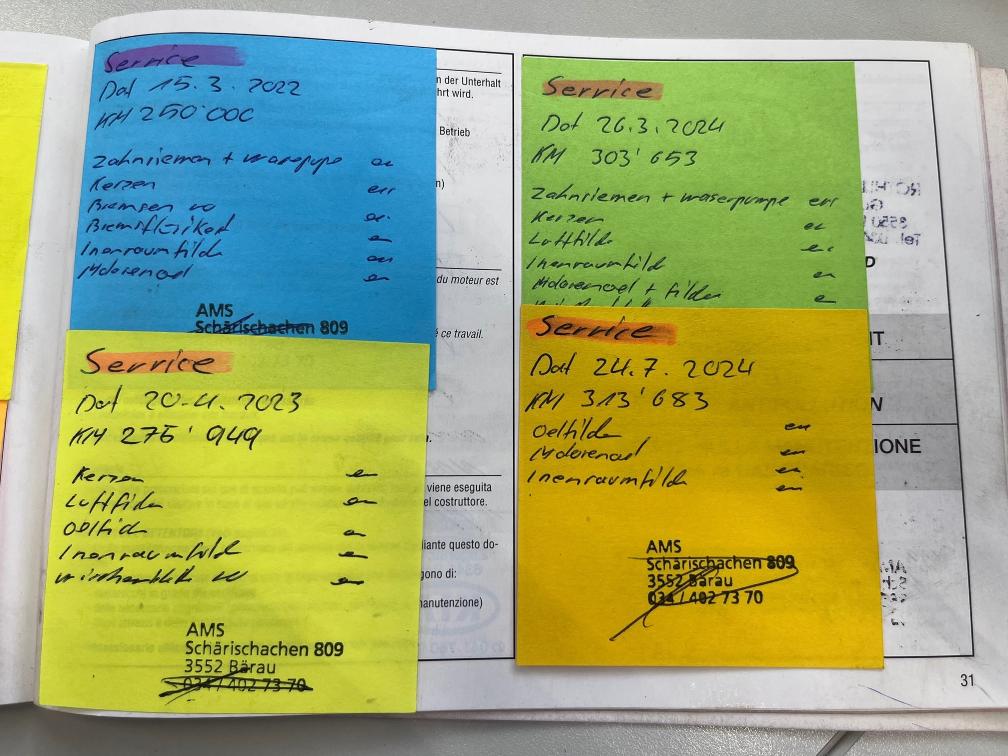 Service
Dat 15.3.2022
KM 250'000
Zahnriemen + wasepupe en
Kerzen en
Bremsen vo
en
Inenraumfilde en
Motorenoel en
AMS
Schärischachen 809
Service
Dat 20.4.2023
KM 276'949
Kerzen en
Luftfilde en
en
Inenraumfild en
en
AMS
Schärischachen 809
3552 Bärau
034 / 402 73 70
n der Unterhalt
hrt wird.
Betrieb
n)
du moteur est
é ce travail.
viene eseguita
el costruttore.
liante questo do-
gono di:
nanutenzione)
Service
Dat 26.3.2024
KM 303'653
Zahnriemen + waserpumpe en
Kerzen en
Luftfilde en
Inenraumfild en
Motorenoel + filde en
Service
Dat 24.7.2024
KM 313'683
Oelfilde en
Motorenoel en
Inenraumfilde en
en
AMS
Schärischachen 809
3552 Bärau
034 / 402 73 70
D
NT
N
IONE
31